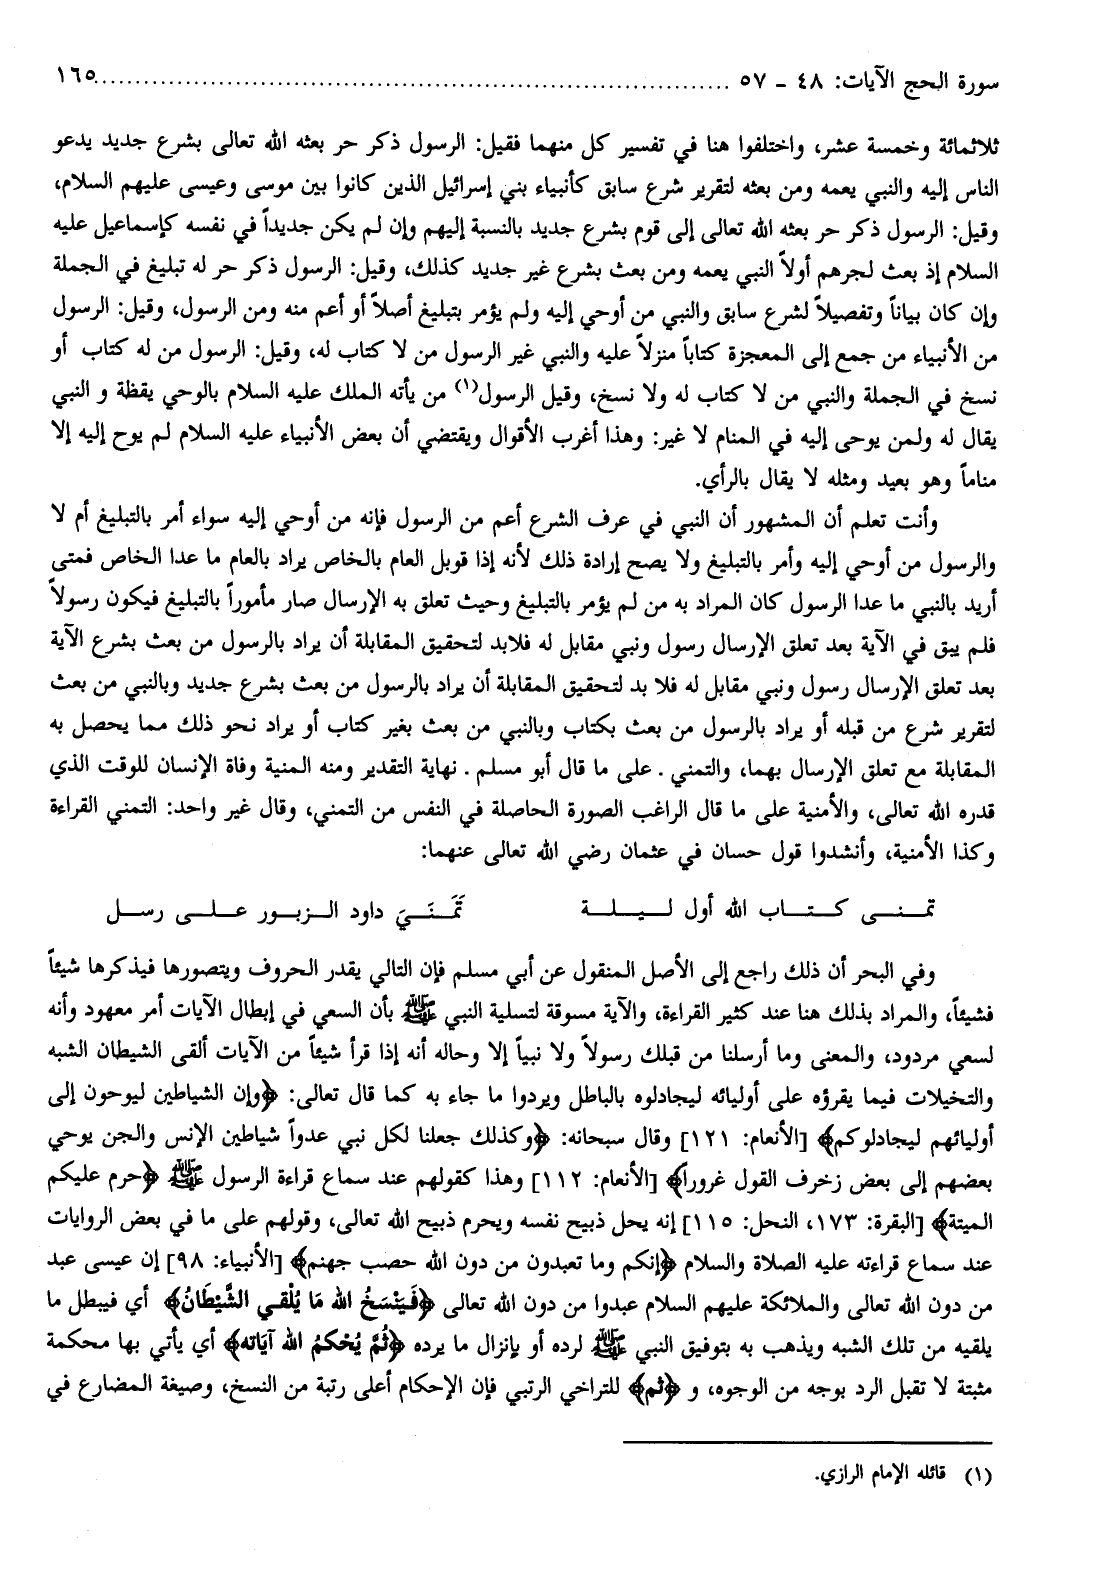 سورة الحج الآيات: ٤٨ ـ ٥٧ ........................................ ١٦٥
ثلاثمائة وخمسة عشر، واختلفوا هنا في تفسير كل منهما فقيل: الرسول ذكر حر بعثه الله تعالى بشرع جديد يدعو
الناس إليه والنبي يعمه ومن بعثه لتقرير شرع سابق كأنبياء بني إسرائيل الذين كانوا بين موسى وعيسى عليهم السلام،
وقيل: الرسول ذكر حر بعثه الله تعالى إلى قوم بشرع جديد بالنسبة إليهم وإن لم يكن جديداً في نفسه كإسماعيل عليه
السلام إذ بعث لجرهم أولاً النبي يعمه ومن بعث بشرع غير جديد كذلك، وقيل: الرسول ذكر حر له تبليغ في الجملة
وإن كان بياناً وتفصيلاً لشرع سابق والنبي من أوحي إليه ولم يؤمر بتبليغ أصلاً أو أعم منه ومن الرسول، وقيل: الرسول
من الأنبياء من جمع إلى المعجزة كتاباً منزلاً عليه والنبي غير الرسول من لا كتاب له، وقيل: الرسول من له كتاب أو
نسخ في الجملة والنبي من لا كتاب له ولا نسخ، وقيل الرسول(١) من يأته الملك عليه السلام بالوحي يقظة و النبي
يقال له ولمن يوحى إليه في المنام لا غير: وهذا أغرب الأقوال ويقتضي أن بعض الأنبياء عليه السلام لم يوح إليه إلا
مناماً وهو بعيد ومثله لا يقال بالرأي.
وأنت تعلم أن المشهور أن النبي في عرف الشرع أعم من الرسول فإنه من أوحي إليه سواء أمر بالتبليغ أم لا
والرسول من أوحي إليه وأمر بالتبليغ ولا يصح إرادة ذلك لأنه إذا قوبل العام بالخاص يراد بالعام ما عدا الخاص فمتى
أريد بالنبي ما عدا الرسول كان المراد به من لم يؤمر بالتبليغ وحيث تعلق به الإرسال صار مأموراً بالتبليغ فيكون رسولاً
فلم يبق في الآية بعد تعلق الإرسال رسول ونبي مقابل له فلابد لتحقيق المقابلة أن يراد بالرسول من بعث بشرع الآية
بعد تعلق الإرسال رسول ونبي مقابل له فلا بد لتحقيق المقابلة أن يراد بالرسول من بعث بشرع جديد وبالنبي من بعث
لتقرير شرع من قبله أو يراد بالرسول من بعث بكتاب وبالنبي من بعث بغير كتاب أو يراد نحو ذلك مما يحصل به
المقابلة مع تعلق الإرسال بهما، والتمني . على ما قال أبو مسلم . نهاية التقدير ومنه المنية وفاة الإنسان للوقت الذي
قدره الله تعالى، والأمنية على ما قال الراغب الصورة الحاصلة في النفس من التمني، وقال غير واحد: التمني القراءة
وكذا الأمنية، وأنشدوا قول حسان في عثمان رضي الله تعالى عنهما:
تمنى كتاب الله أول ليلة تَمَنِّيَ داود الزبور على رسل
وفي البحر أن ذلك راجع إلى الأصل المنقول عن أبي مسلم فإن التالي يقدر الحروف ويتصورها فيذكرها شيئاً
فشيئاً، والمراد بذلك هنا عند كثير القراءة، والآية مسوقة لتسلية النبي ﷺ بأن السعي في إبطال الآيات أمر معهود وأنه
لسعي مردود، والمعنى وما أرسلنا من قبلك رسولاً ولا نبياً إلا وحاله أنه إذا قرأ شيئاً من الآيات ألقى الشيطان الشبه
والتخيلات فيما يقرؤه على أوليائه ليجادلوه بالباطل ويردوا ما جاء به كما قال تعالى: ﴿وإن الشياطين ليوحون إلى
أوليائهم ليجادلوكم﴾ [الأنعام: ١٢١] وقال سبحانه: ﴿وكذلك جعلنا لكل نبي عدواً شياطين الإنس والجن يوحي
بعضهم إلى بعض زخرف القول غروراً﴾ [الأنعام: ١١٢] وهذا كقولهم عند سماع قراءة الرسول ﷺ ﴿حرم عليكم
الميتة﴾ [البقرة: ١٧٣، النحل: ١١٥] إنه يحل ذبيح نفسه ويحرم ذبيح الله تعالى، وقولهم على ما في بعض الروايات
عند سماع قراءته عليه الصلاة والسلام ﴿إنكم وما تعبدون من دون الله حصب جهنم﴾ [الأنبياء: ٩٨] إن عيسى عبد
من دون الله تعالى والملائكة عليهم السلام عبدوا من دون الله تعالى ﴿فَيَنْسَخُ الله مَا يُلْقي الشَّيْطَانُ﴾ أي فيبطل ما
يلقيه من تلك الشبه ويذهب به بتوفيق النبي ﷺ لرده أو بإنزال ما يرده ﴿ثُمَّ يُحْكمُ الله آيَاته﴾ أي يأتي بها محكمة
مثبتة لا تقبل الرد بوجه من الوجوه، و ﴿ثم﴾ للتراخي الرتبي فإن الإحكام أعلى رتبة من النسخ، وصيغة المضارع في
(١) قائله الإمام الرازي.